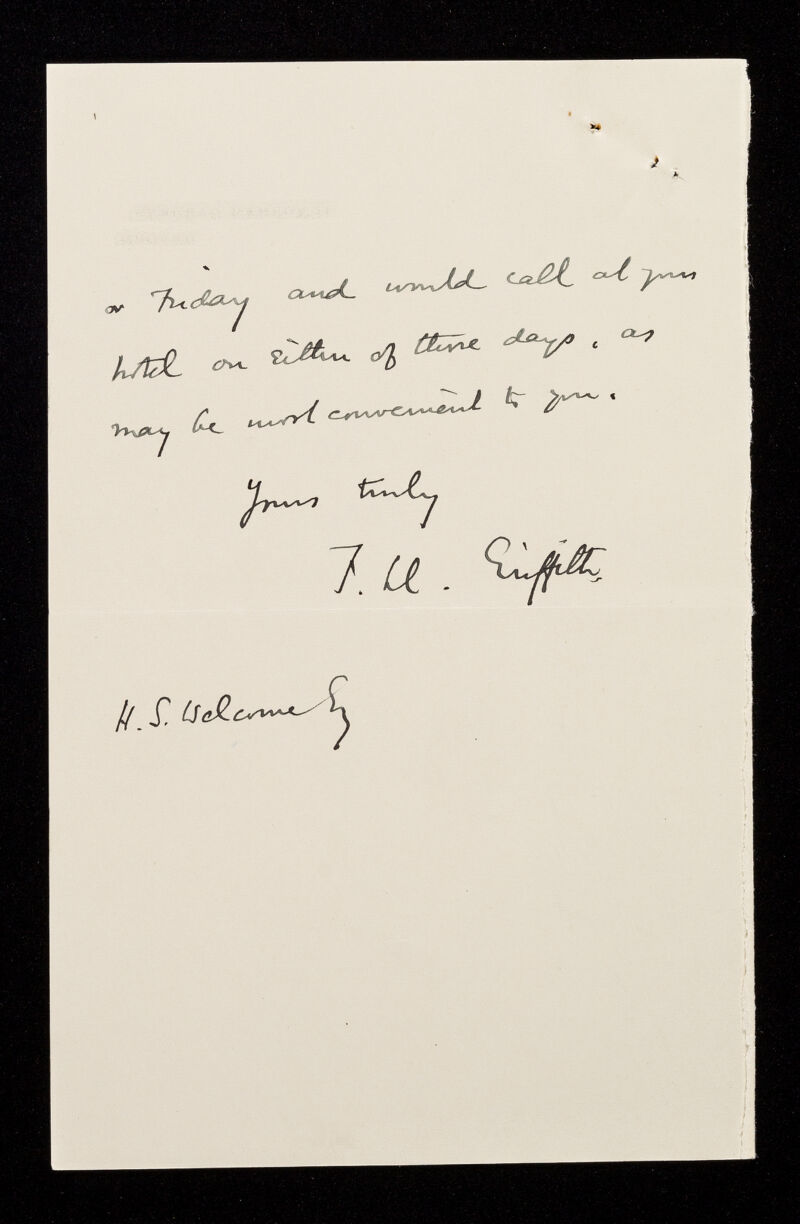 or Friday and would call at your
hotel on either of those days, as
may be most convenient to you.
Yours truly
F. Ll. Griffith.
H. S. Welcome Esq